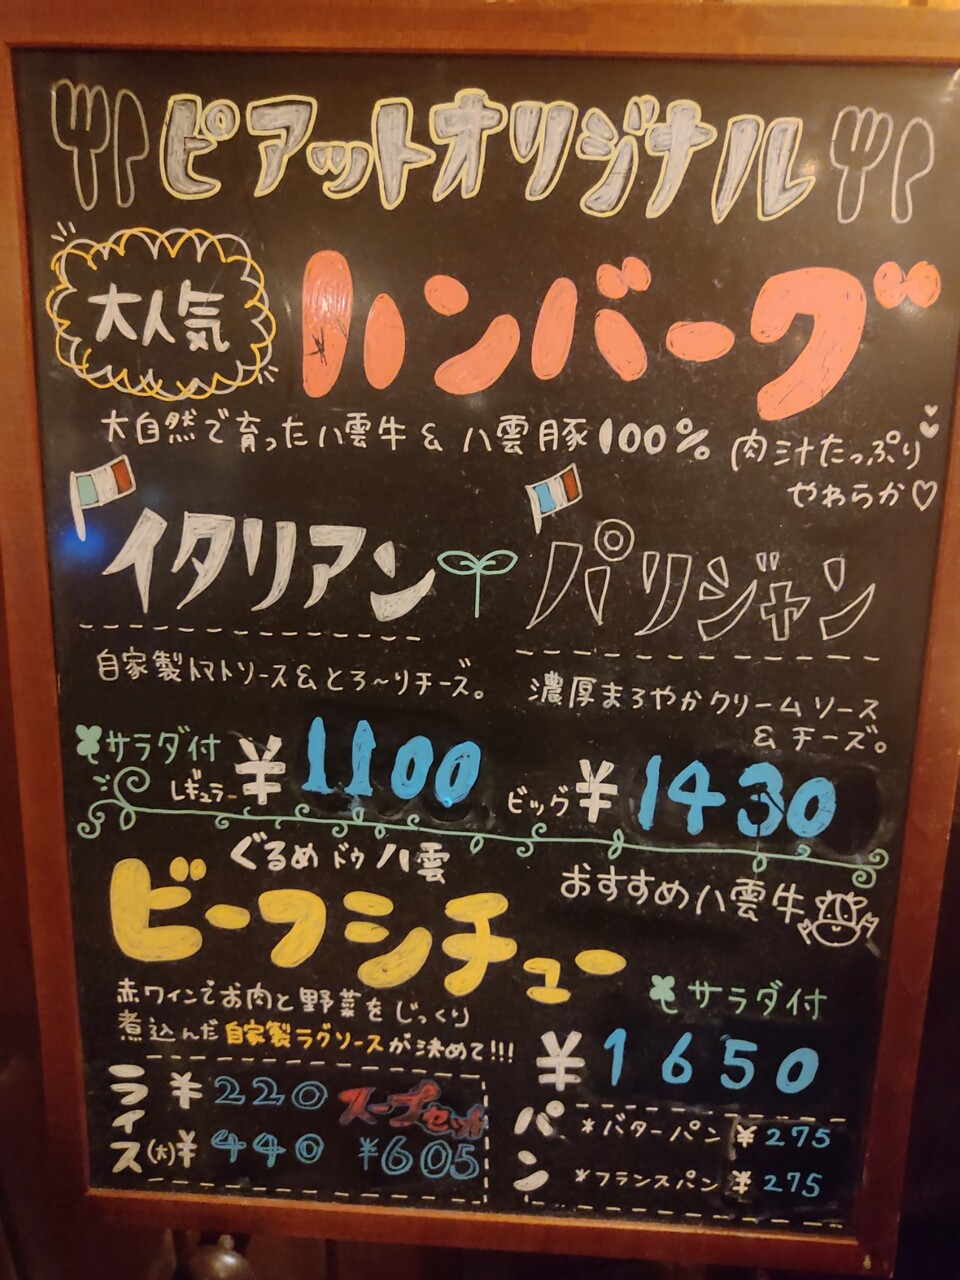 ピアットオリジナル
大人気
ハンバーグ
大自然で育った八雲牛 & 八雲豚100%
肉汁たっぷり
やわらか♡
イタリアン
自家製トマトソース&とろ〜りチーズ。
パリジャン
濃厚まろやかクリームソース
& チーズ。
サラダ付
レギュラー ¥1100
ビッグ ¥1430
ぐるめ ドゥ 八雲
ビーフシチュー
おすすめ八雲牛
赤ワインでお肉と野菜をじっくり
煮込んだ自家製ラグソースが決めて!!!
サラダ付
¥1650
ライス ¥220
(大) ¥440
スープセット
¥605
パン
*バターパン ¥275
*フランスパン ¥275